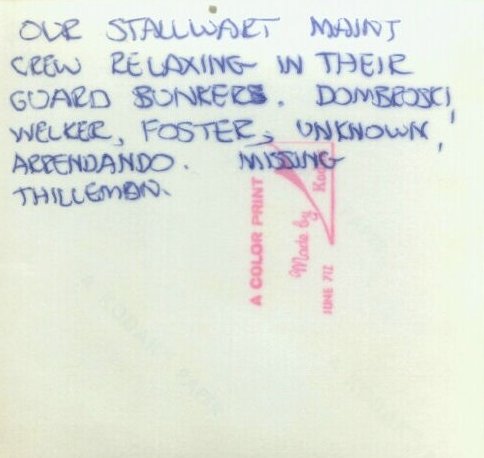 OUR STALLWART MAINT
CREW RELAXING IN THEIR
GUARD BUNKERS. DOMBROSKI,
WELKER, FOSTER, UNKNOWN,
ARRENDANDO. MISSING
THILLEMAN.
A COLOR PRINT
Made by
Kodak
JUNE 71Z